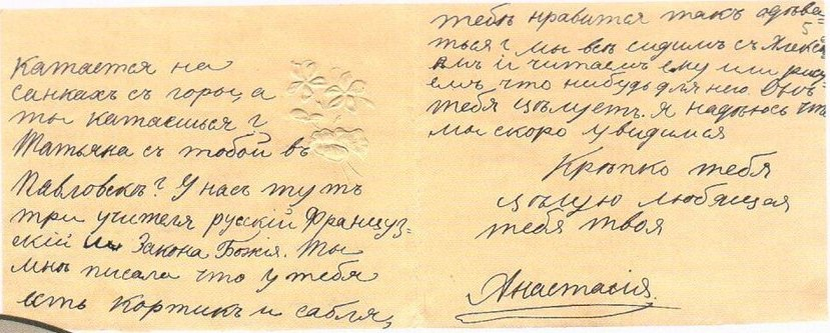 Катается на
санкахъ съ горы, а
ты катаешься?
Татьяна съ тобой въ
Павловскѣ? У насъ тутъ
три учителя русскій Француз=
скій и Закона Божія. Ты
мнѣ писала что у тебя
есть кортикъ и сабля,
тебѣ нравится такъ одѣва
ться? мы всѣ сидимъ съ Алексѣ
емъ и читаемъ ему или рису
емъ что нибудь для него. Онъ
тебя цѣлуетъ. Я надѣюсь что
мы скоро увидимся
Крѣпко тебя
цѣлую любящая
тебя твоя
Анастасія.